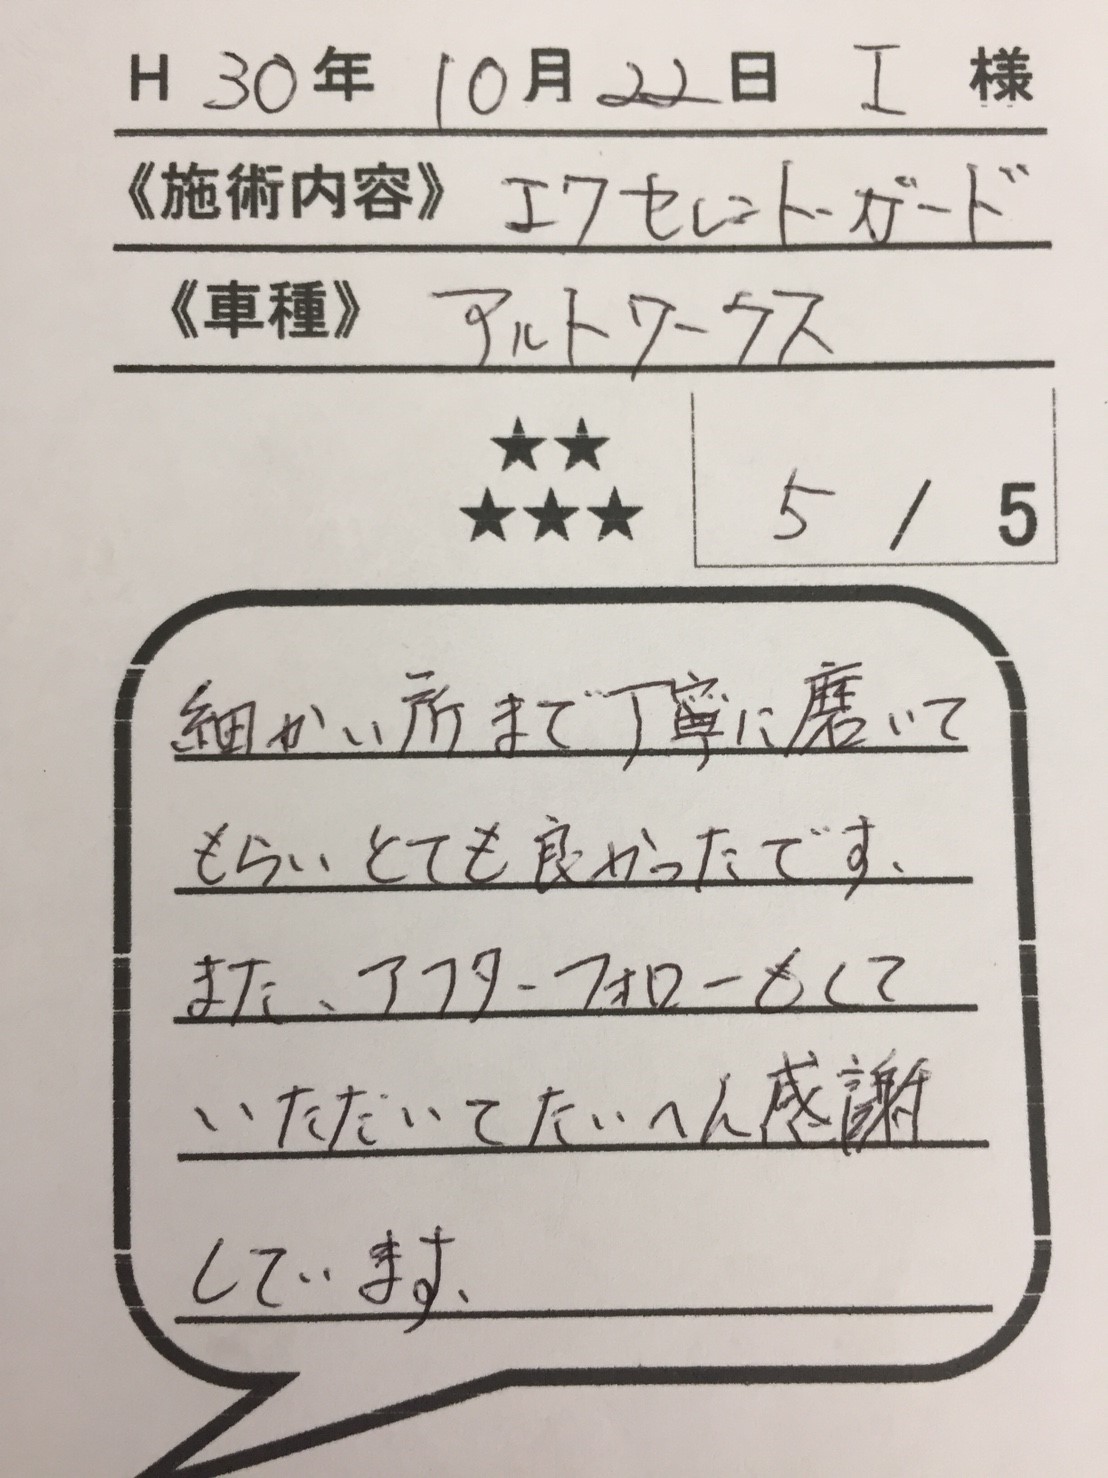 H 30年 10月 22日 I 様
《施術内容》 エクセレントガード
《車種》 アルトワークス
★★
★★★ 5 / 5
細かい所まで丁寧に磨いて
もらいとても良かったです、
また、アフターフォローもして
いただいてたいへん感謝
しています、